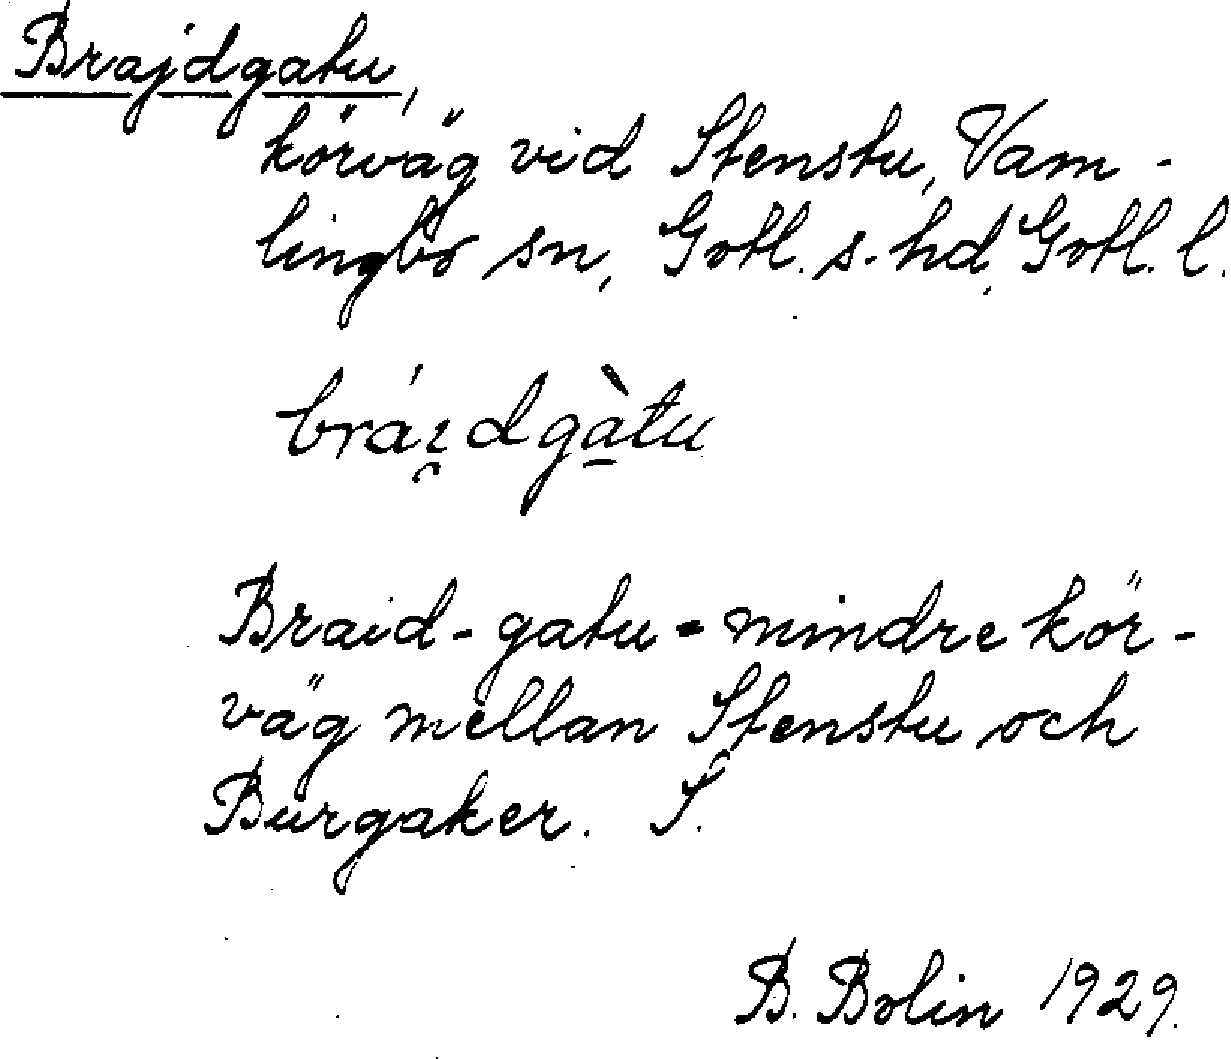 Brajdgatu,
körväg vid Stenstu, Vam-
lingbo sn, Gotl. s. hd, Gotl. l.
brá̀ɪ̯dgà̱tu
Braid-gatu = mindre kör-
väg mellan Stenstu och
Burgaker. S.
B. Bolin 1929.